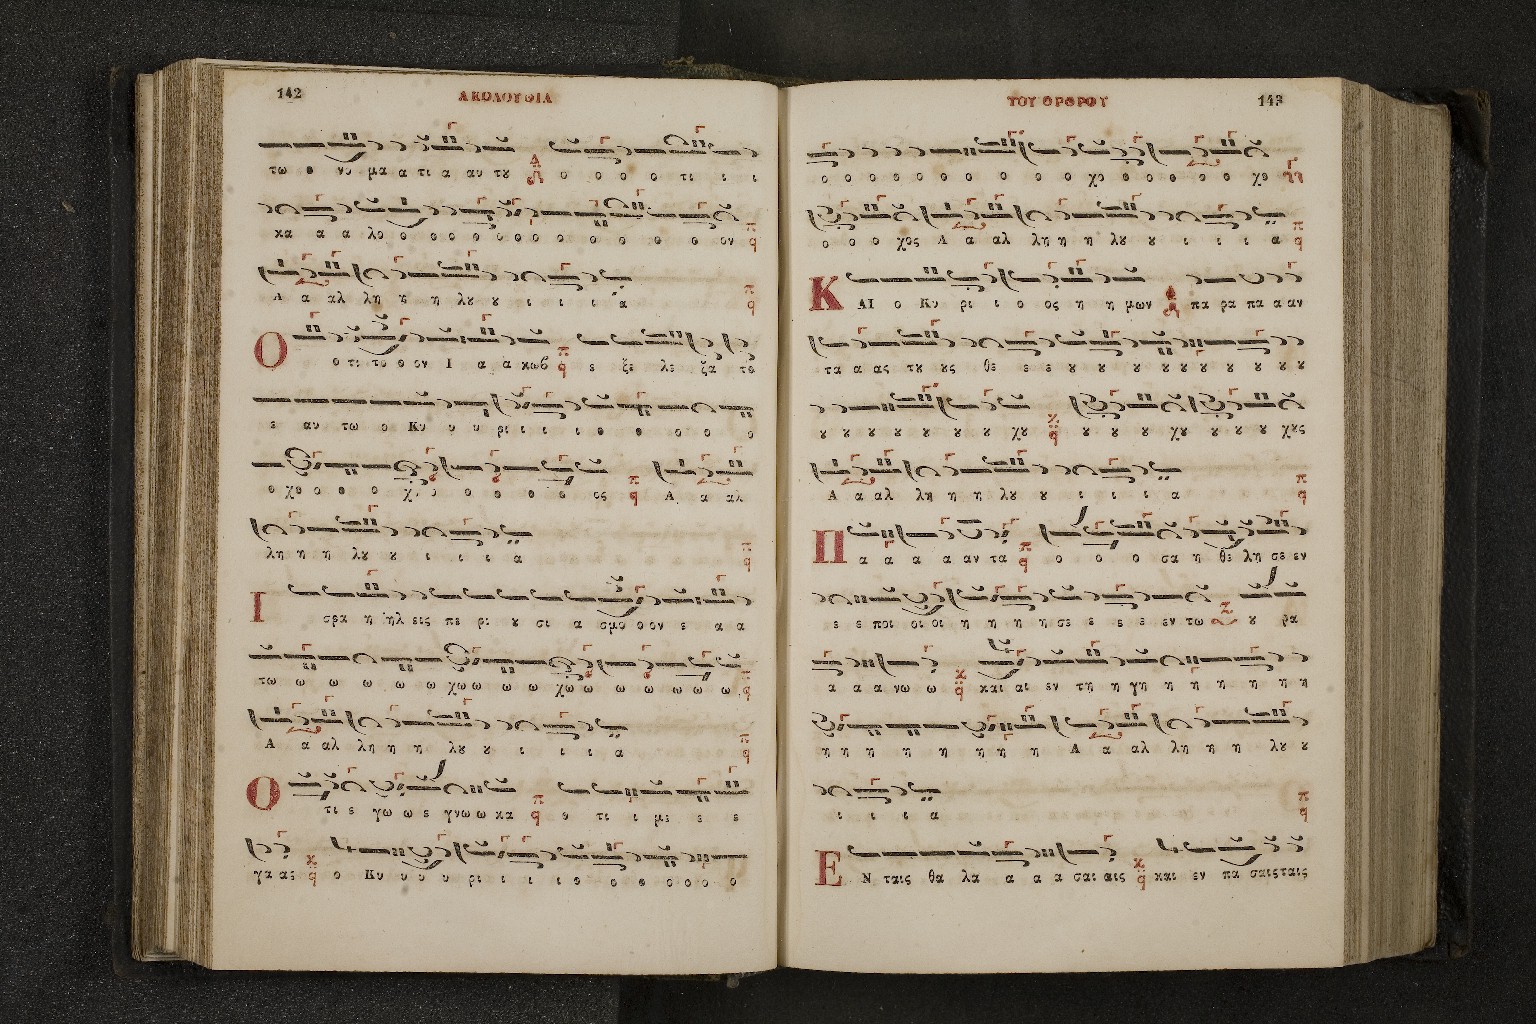 142 ΑΚΟΛΟΥΘΙΑ
τω ο νο μα α τι α αυ τȣ ο ο ο ο τι ι ι
κα α α λο ο ο ο ο ο ο ο ο ο ο ο ο ο ον
Α α αλ λη η η λȣ ȣ ι ι ι α
Ο ο τι το ο ον Ι α α κωβ ε ξε λε ξα το
ε αυ τω ο Κυ υ υ ρι ι ι ι ο ο ο ο ο ο
ο χο ο ο ο ο ο ο ο ο ος Α α αλ
λη η η λȣ ȣ ι ι ι α
Ι σρα η ηλ εις πε ρι ȣ σι α σμο ο ον ε α α
τω ω ω ω ω ω ω χω ω ω ω ω χω ω ω ω ω ω ω ω
Α α αλ λη η η λȣ ȣ ι ι ι α
Ο τι ε γω ω ε γνω ω κα ο τι ι με ε ε
γα ας ο Κυ υ υ υ ρι ι ι ι ο ο ο ο ο ο ο
ΤΟΥ ΟΡΘΡΟΥ 143
ο ο ο ο ο ο ο ο ο ο ο χο ο ο ο ο ο ο χο
ο ο ο χος Α α αλ λη η η λȣ ȣ ι ι ι α
ΚΑΙ ο Κυ ρι ι ο ος η η μων πα ρα πα α αν
τα α ας τȣ ȣς θε ε ε ȣ ȣ ȣ ȣ ȣ ȣ ȣ ȣ ȣ ȣ
ȣ ȣ ȣ ȣ ȣ ȣ ȣ χȣ ȣ ȣ ȣ χȣ ȣ ȣ ȣ χȣς
Α α αλ λη η η λȣ ȣ ι ι ι α
Π α α α α αν τα ο ο ο σα η θε λη σε εν
ε ε ποι οι οι η η η η σε ε ε ε εν τω ȣ ρα
α α α νω ω και αι εν τη η γη η η η η η η η
η η η η η η η η η Α α αλ λη η η λȣ ȣ
ι ι ι α
ΕΝ ταις θα λα α α α σαι αις και εν πα σαις ταις